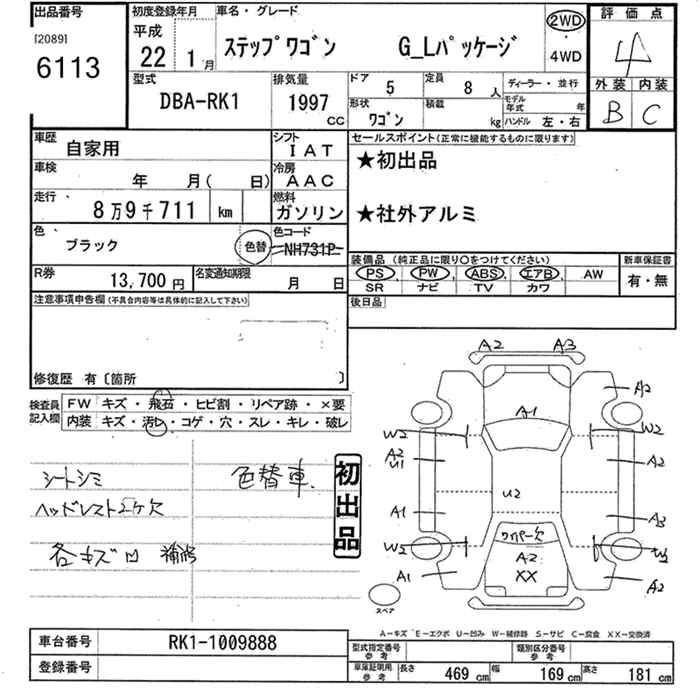 出品番号
[2089]
6113
初度登録年月
平成
22 1月
車名・グレード
ステップワゴン G_Lパッケージ
2WD
・
4WD
評価点
4
外装 内装
B C
型式
DBA-RK1
排気量
1997
cc
ドア 5
定員 8人
ディーラー・並行
形状 ワゴン
積載 kg
モデル年式 年
ハンドル 左・右
車歴 自家用
シフト IAT
車検 年 月( 日)
冷房 AAC
走行 8万9千711 km
燃料 ガソリン
色 ブラック
色替
色コード NH731P
R券 13,700円
名変通知期限 月 日
セールスポイント(正常に機能するものに限ります)
★初出品
★社外アルミ
装備品 (純正品に限り○をつけてください)
新車保証書
PS PW ABS エアB AW
SR ナビ TV カワ
有・無
後日品
注意事項申告欄(不具合内容等は具体的に記入して下さい)
修復歴 有〔箇所 〕
検査員記入欄
FW キズ・飛石・ヒビ割・リペア跡・×要
内装 キズ・汚レ・コゲ・穴・スレ・キレ・破レ
シートシミ
ヘッドレスト2ケ欠
各キズ凹 補修
色替車
初出品
A2 A3
A2
A1
W2 W2
A2
U1
A2
U2
A1 A3
ワイパー欠
W2 W2
A2
XX
A1 A2
スペア
A-キズ E-エクボ U-凹み W-補修跡 S-サビ C-腐食 XX-交換済
車台番号 RK1-1009888
登録番号
型式指定番号
参考
類別区分番号
参考
車庫証明用
参考
長さ 469 cm 幅 169 cm 高さ 181 cm